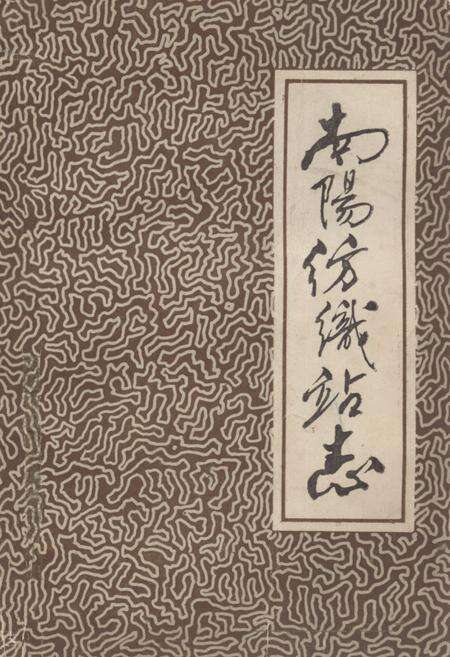 南陽紡織站志